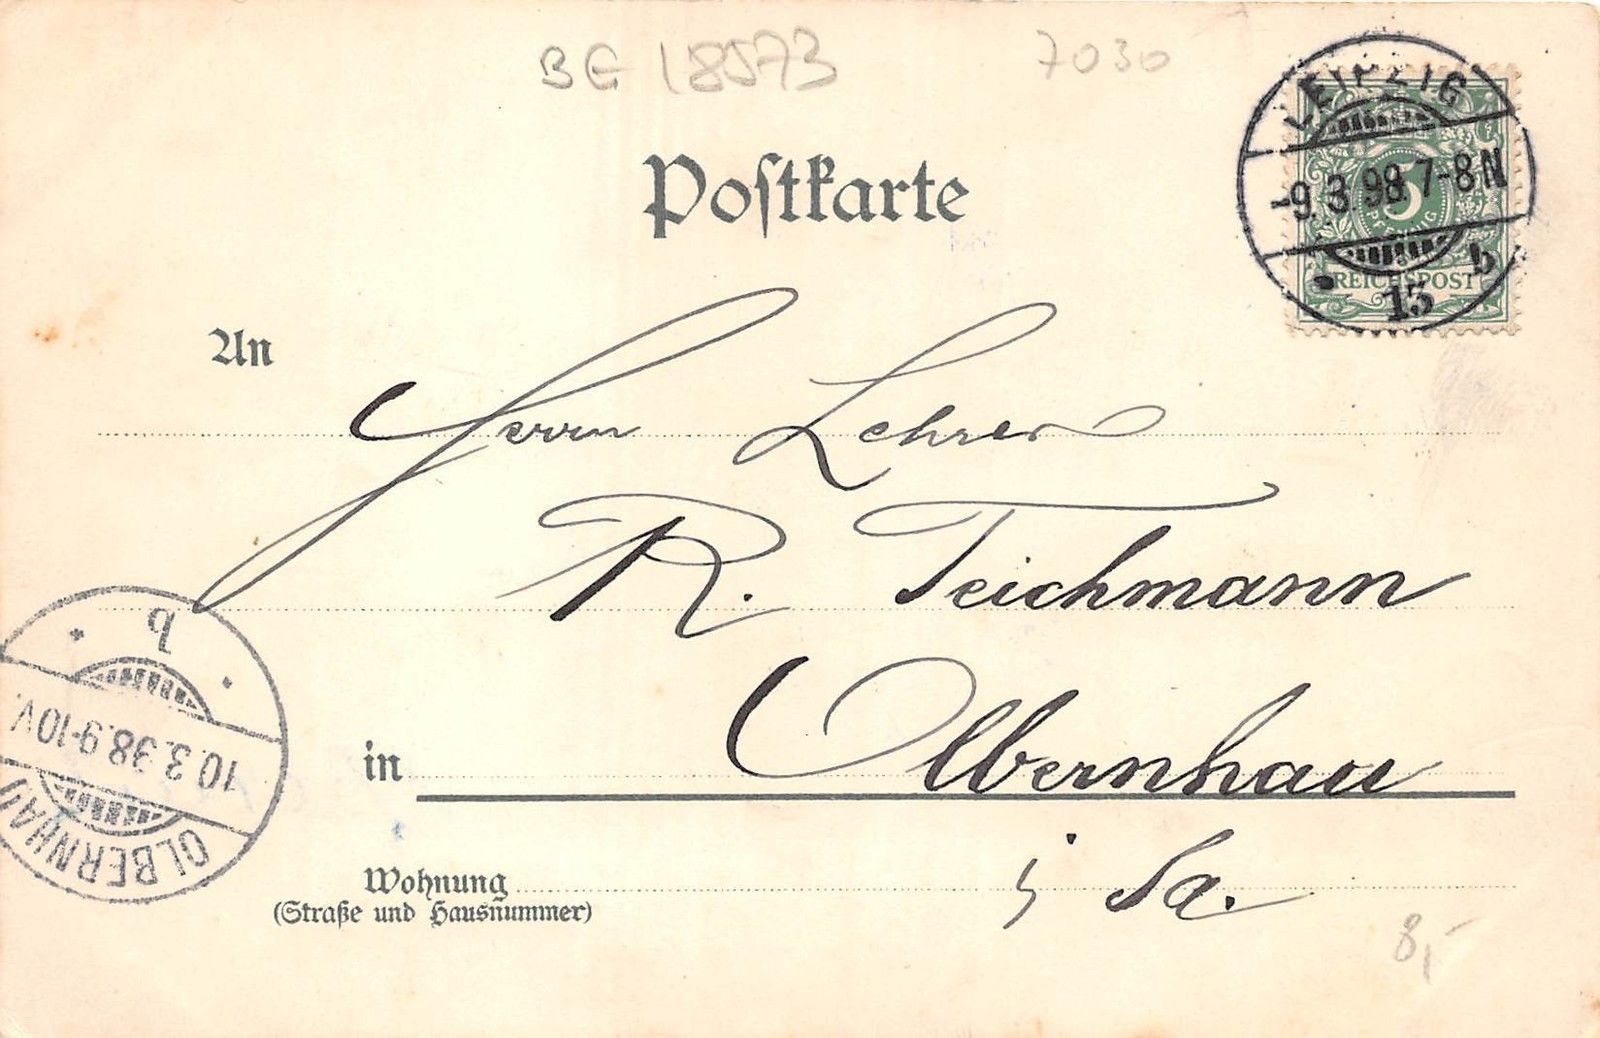 BE 18573
7030
LEIPZIG
-9.3.98.7-8N
15 b
5
PFENNIG
REICHSPOST
Postkarte
An
Herrn Lehrer
R. Teichmann
in Olbernhau
i Sa.
Wohnung
(Straße und Hausnummer)
OLBERNHAU
10.3.98.9-10V.
b
8,-